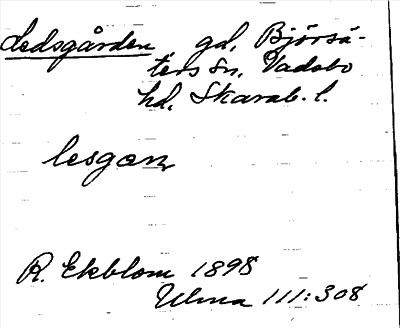 Ledsgården gd, Björsä-
ters sn. Vadsbo
hd, Skarab. l.
lesgan
R. Ekblom 1898
Ulma 111:308